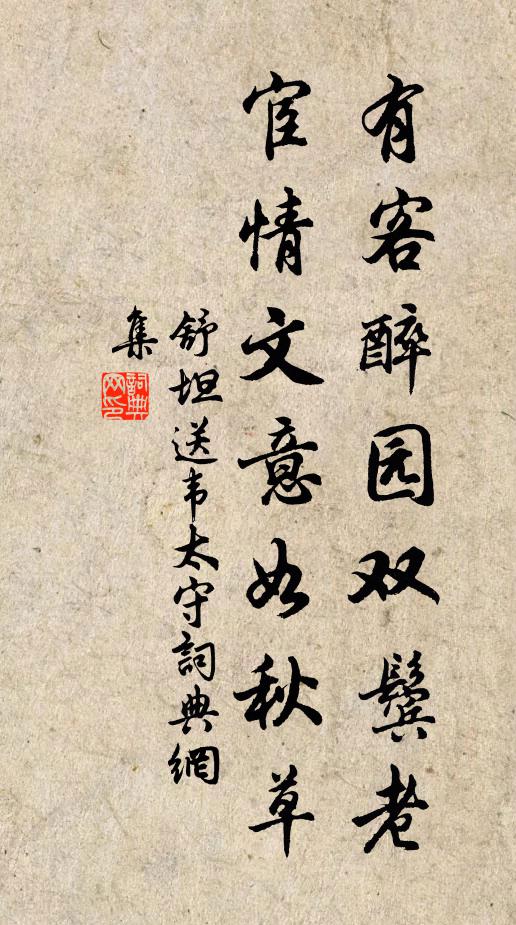 有客醉园双鬓老
宦情文意如秋草
舒坦送韦太守詞典網
集
詞典网印